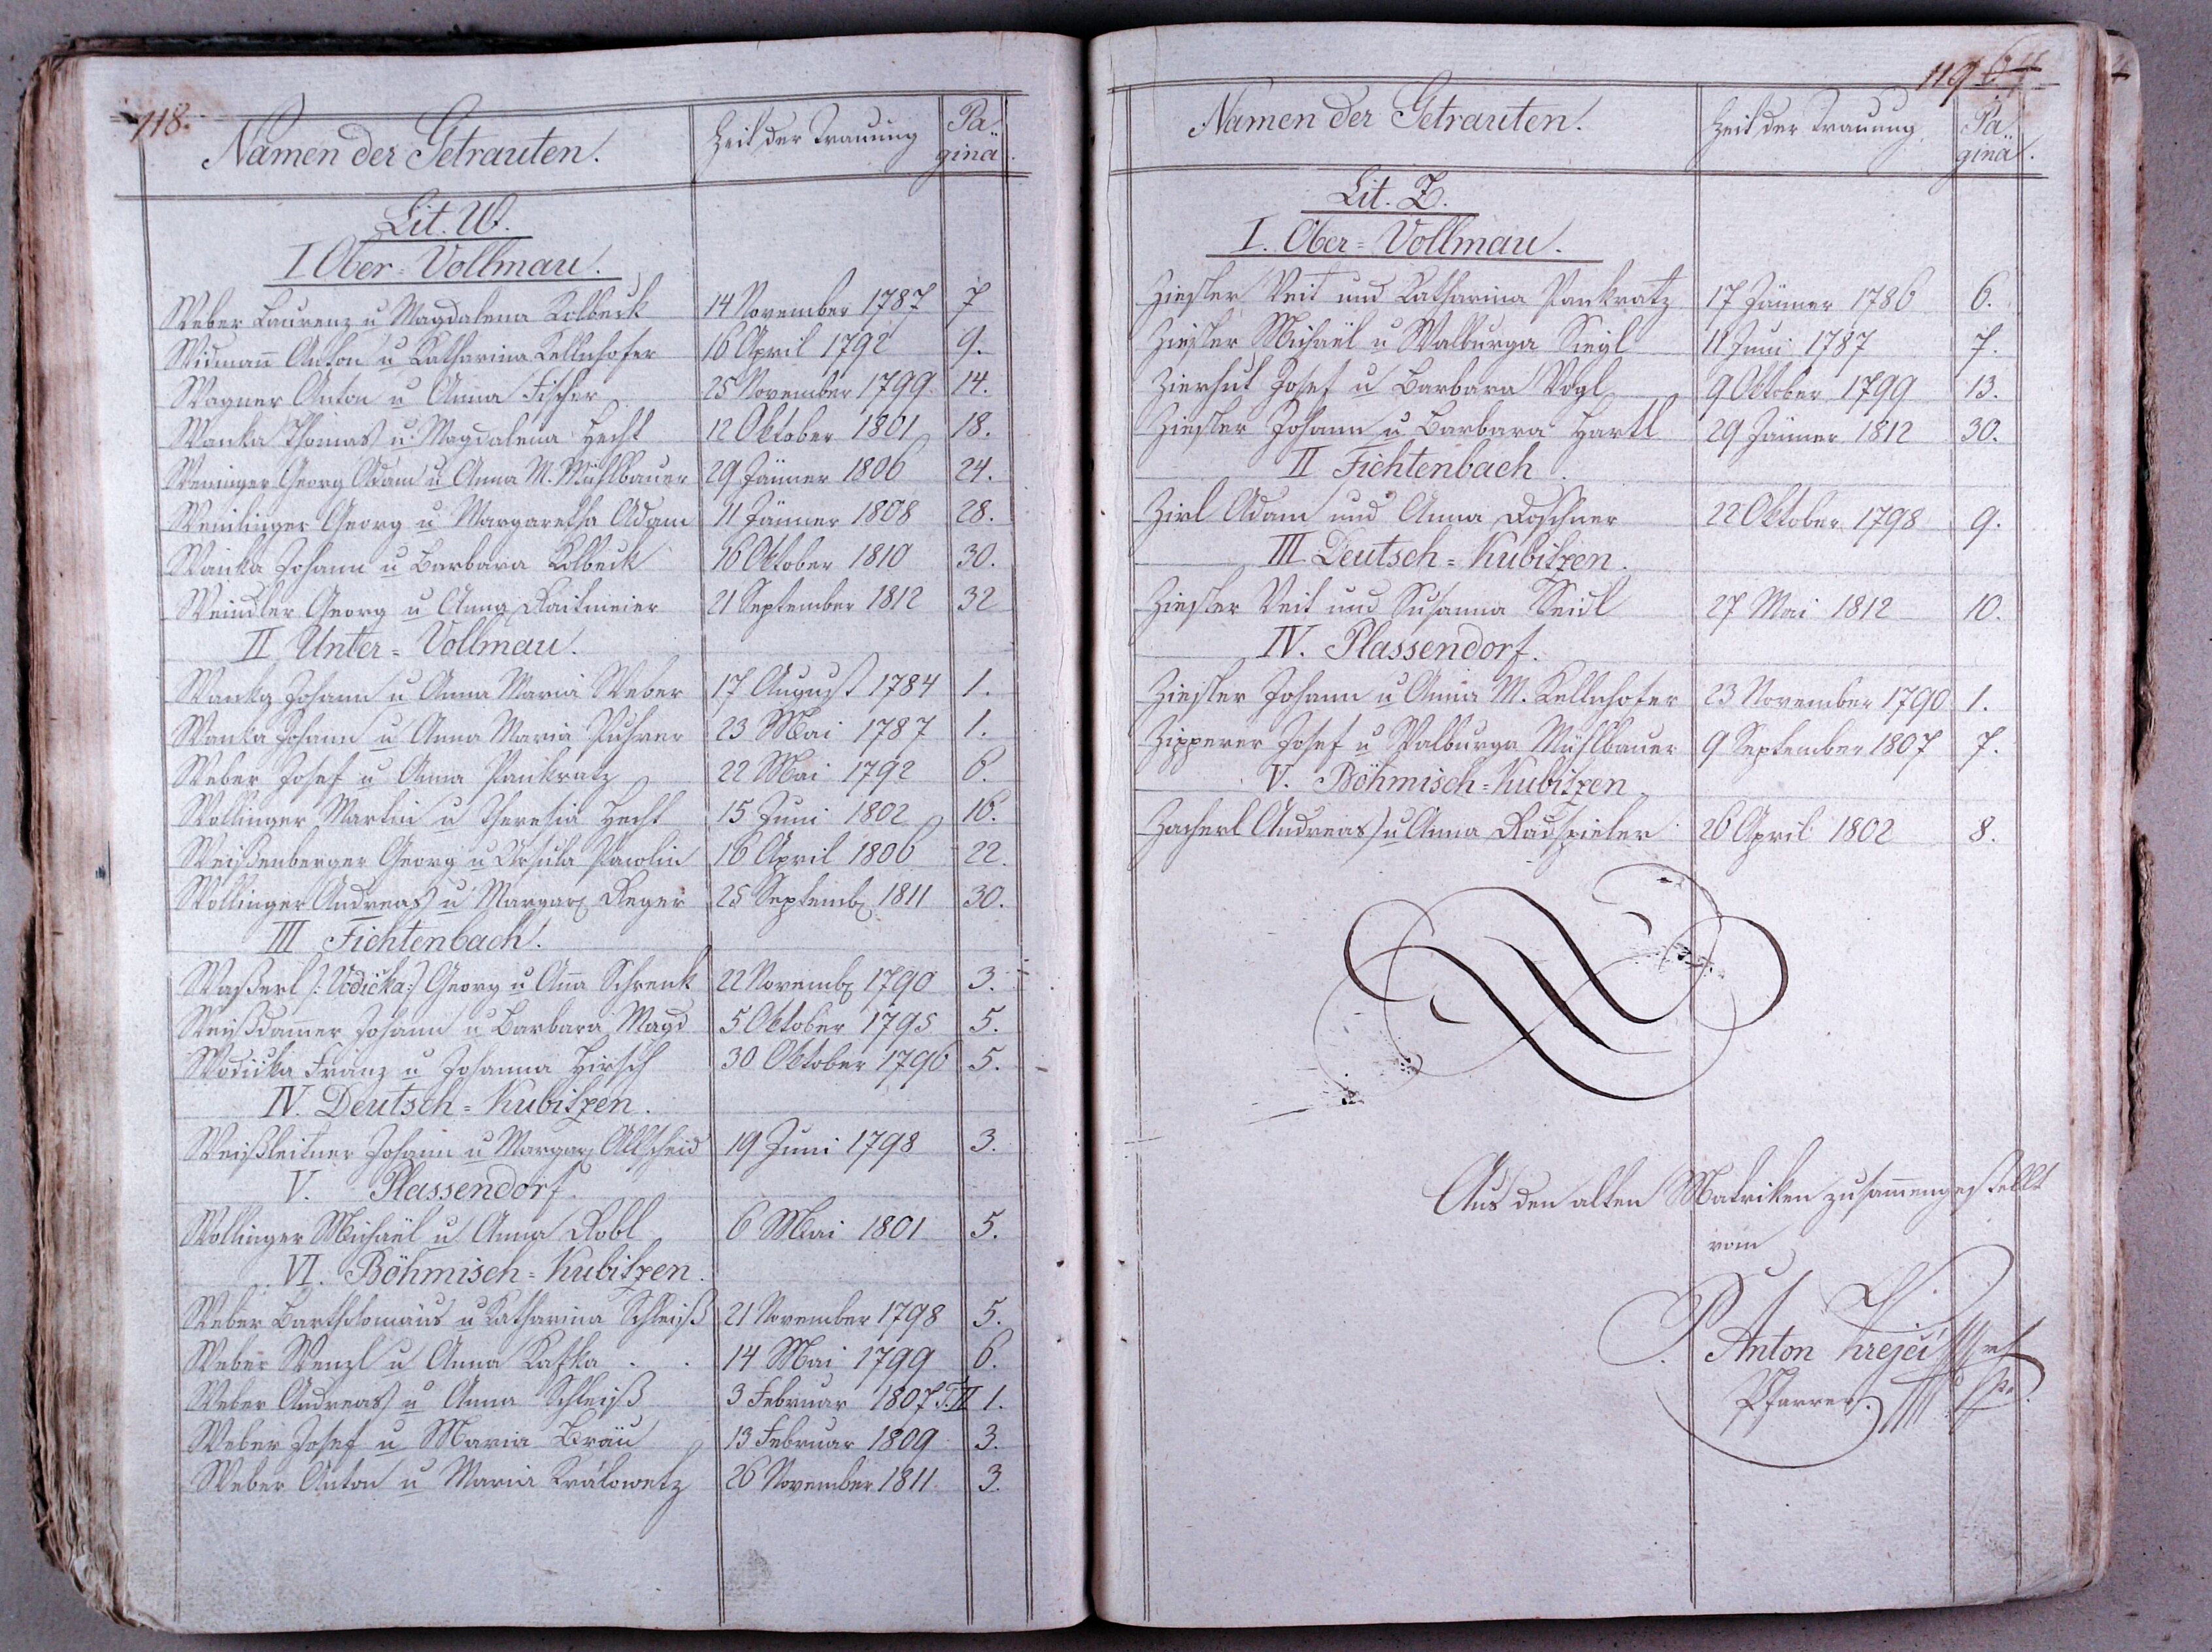 118.
Namen der Getrauten. Zeit der Trauung Pagina.
Lit. W.
I Ober-Vollmau.
Weber Laurenz u Magdalena Kolbeck 14 November 1787 7
Widmann Anton u Katharina Kellnhofer 16 April 1792 9.
Wagner Anton u Anna Fischer 25 November 1799 14.
Wanka Thomas u. Magdalena Hecht 12 Oktober 1801 18.
Weninger Georg Adam u Anna M. Mühlbauer 29 Jänner 1806 24.
Georg u Margaretha Adam 11 Jänner 1808 28.
Wanka Johann u Barbara Kolbeck 16 Oktober 1810 30.
Weindler Georg u Anna Raitmeier 21 September 1812 32
II Unter-Vollmau.
Wanka Johann u Anna Maria Weber 17 August 1784 1.
Wanka Johann u Anna Maria 23 Mai 1787 1.
Weber Josef u Anna Pankratz 22 Mai 1792 6.
Wollinger Martin u Theresia Hecht 15 Juni 1802 16.
Weißenberger Georg u Ursula 16 April 1806 22.
Wollinger Andreas u Margar. Reger 25 Septemb. 1811 30.
III Fichtenbach.
Waßerl /: Vodička :/ Georg u Anna Schrenk 22 Novemb. 1790 3.
Johann u Barbara Magd 5 Oktober 1795 5.
Wodička Franz u Johanna Hirsch 30 Oktober 1796 5.
IV. Deutsch-Kubitzen.
Weißleitner Johann u Margar. Altscheid 19 Juni 1798 3.
V. Plassendorf.
Wollinger Michaël u Anna Robl 6 Mai 1801 5.
VI. Böhmisch-Kubitzen.
Weber Bartholomäus u Katharina Schleiß 21 November 1798 5.
Weber Wenzl u Anna Kafka . . 14 Mai 1799 6.
Weber Andreas u Anna Schleiß 3 Februar 1807 T.II 1.
Weber Josef u Maria Bräu 13 Februar 1809 3.
Weber Anton u Maria Králowetz 26 November 1811 3.
119 64
Namen der Getrauten. Zeit der Trauung Pagina.
Lit. Z.
I. Ober-Vollmau.
Ziegler Veit und Katharina Pankratz 17 Jänner 1786 6.
Ziegler Michaël u Walburga Siegl 11 Juni 1787 7.
Zierhut Josef u Barbara Vogl 9 Oktober 1799 13.
Ziegler Johann u Barbara Hartl 29 Jänner 1812 30.
II Fichtenbach.
Zirl Adam und Anna Roschner 22 Oktober 1798 9.
III Deutsch-Kubitzen.
Ziegler Veit und Susanna Seidl 27 Mai 1812 10.
IV. Plassendorf.
Ziegler Johann u Anna M. Kellnhofer 23 November 1790 1.
Zipperer Josef u Walburga Mühlbauer 9 September 1807 7.
V. Böhmisch-Kubitzen
Zacherl Andreas u Anna Radspieler 26 April 1802 8.
Aus den alten Matriken zusammengestellt
vom
P. Anton Krejčí
Pfarrer.